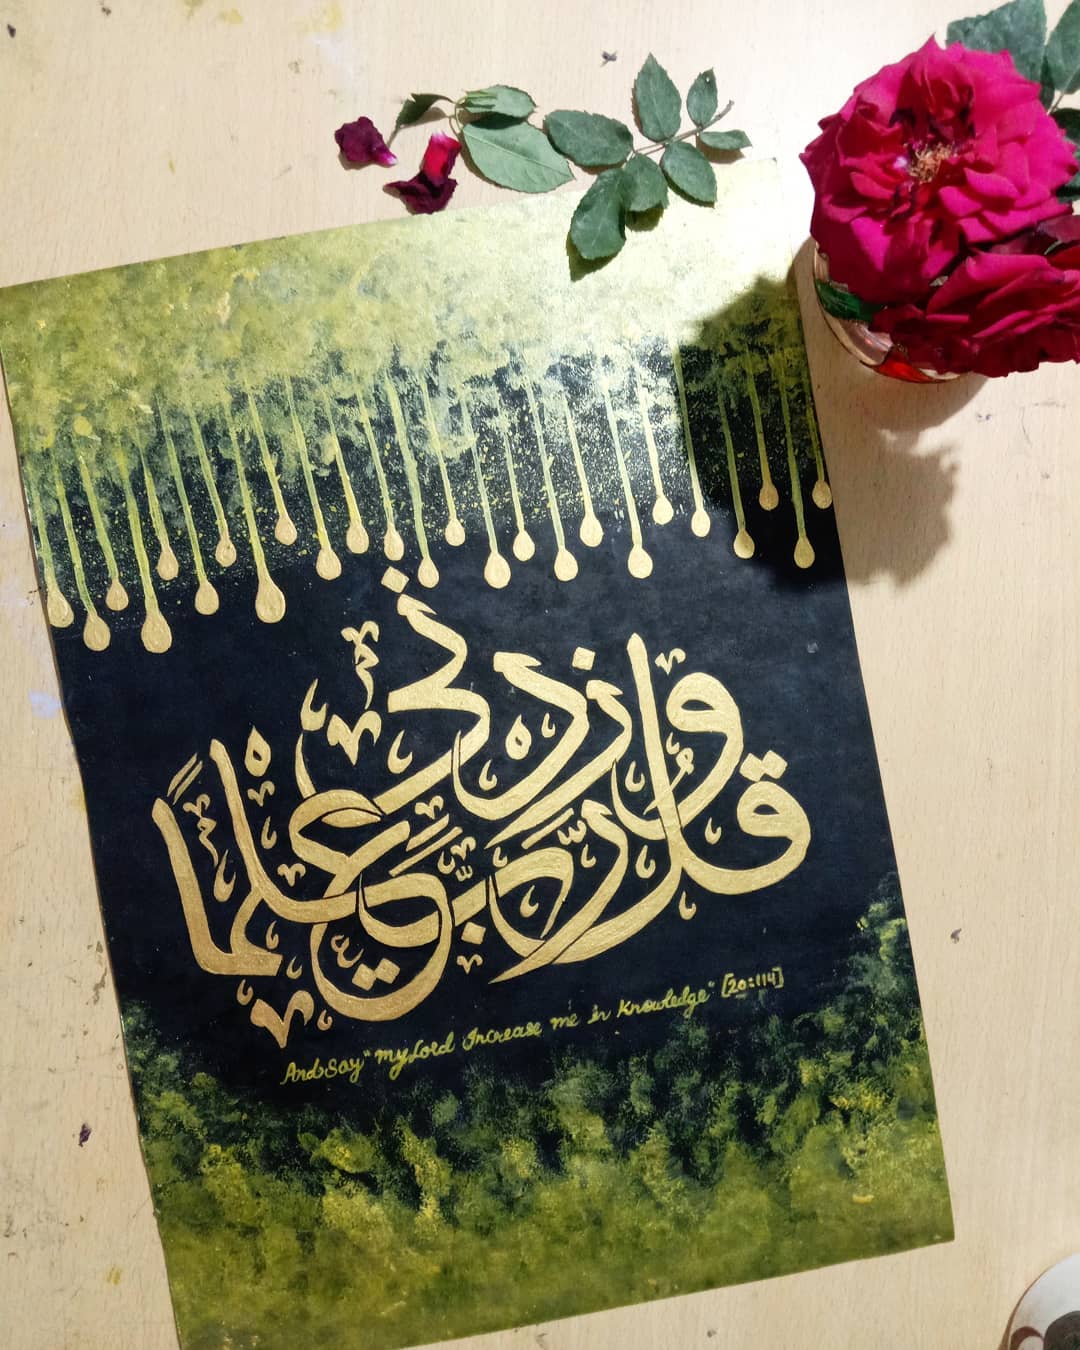 وَقُل رَّبِّ زِدْنِي عِلْمًا
And Say "My Lord Increase me in Knowledge" [20:114]